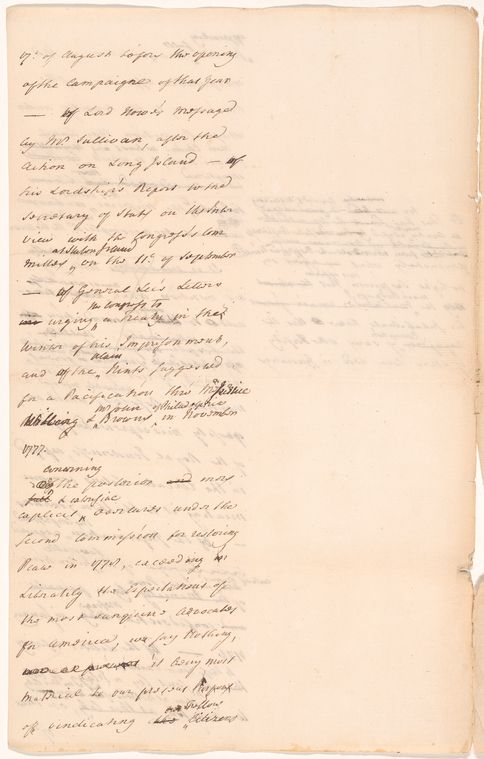 17th of August before the opening
of the Campaigne of that Year
— of Lord Howe's Message
by Mr Sullivan, after the
Action on Long Island — of
his Lordship's Report to the
Secretary of State on the Inter
view with the Congress's Com
at Staten Island
mittee, on the 11th of September
— of General Lee's Letters
the Congress to
urging a Treaty in the
Winter of his Imprisonment,
and of the Hints suggested
for a Pacification thro' Mr Justice
Mr John of Philadelphia
& Browne in November
1777.
concerning
the posterior and more
full & extensive
explicit overtures under the
Second Commission for restoring
Peace in 1778, exceeding in
Liberality the Expectations of
the most sanguine Advocates
for America, we say Nothing,
it being most
material to our present Purpose
our Fellow
of vindicating the Citizens